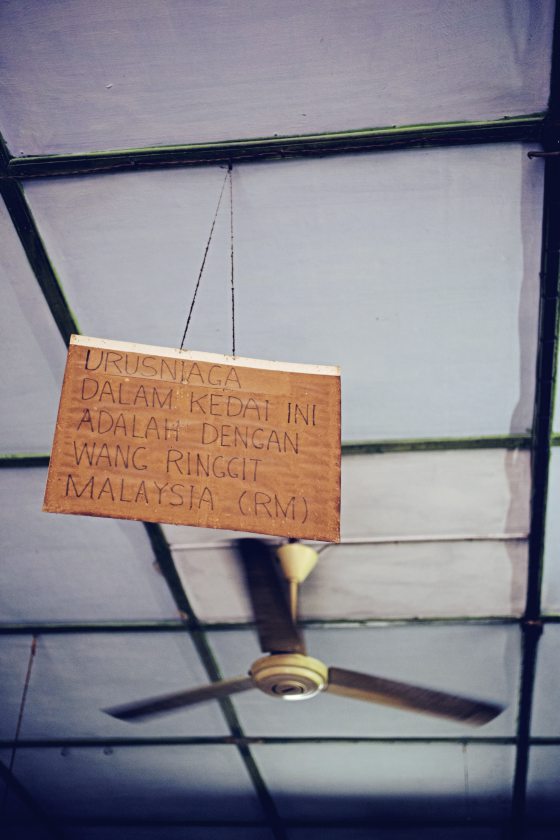 URUSNIAGA
DALAM KEDAI INI
ADALAH DENGAN
WANG RINGGIT
MALAYSIA (RM)